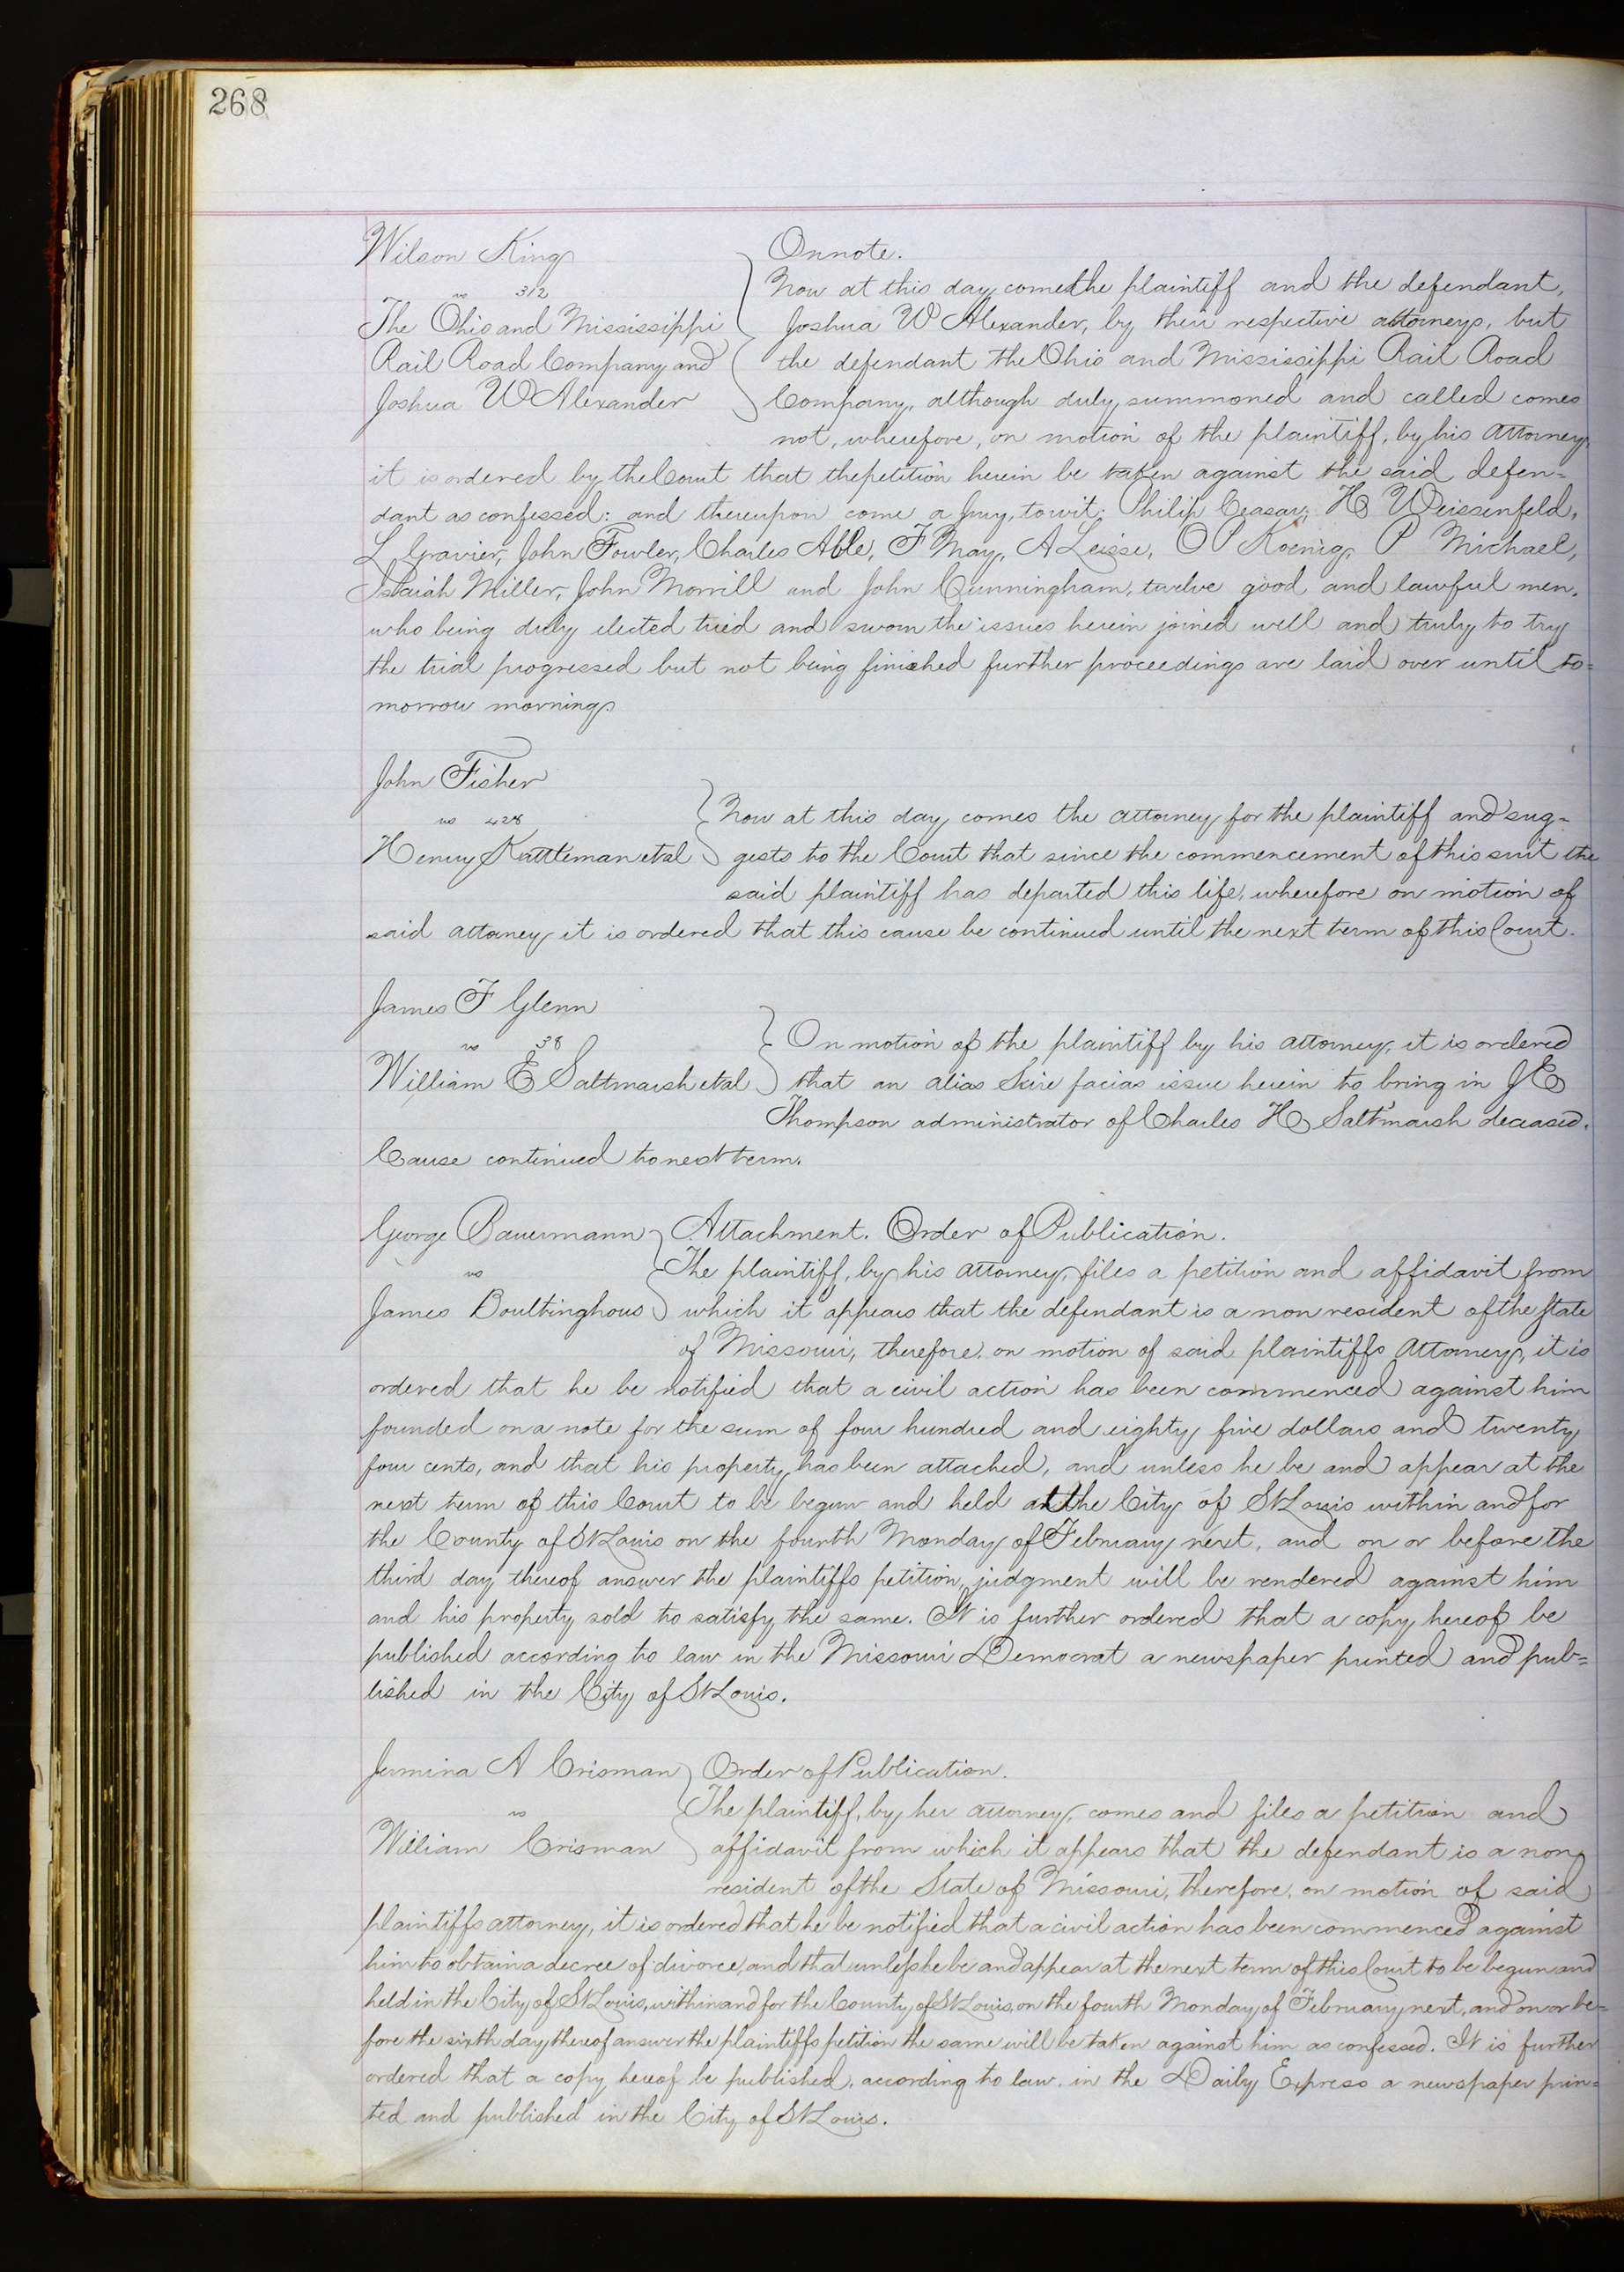 268
Wilson King
vs 312
The Ohio and Mississippi
Rail Road Company and
Joshua W Alexander
On note.
Now at this day come the plaintiff and the defendant,
Joshua W Alexander, by their respective attorneys, but
the defendant the Ohio and Mississippi Rail Road
Company, although duly summoned and called comes
not, wherefore, on motion of the plaintiff, by his attorney,
it is ordered by the Court that the petition herein be taken against the said defen=
dant as confessed: and thereupon come a Jury, towit: Philip Ceasar, H Weissenfeld,
L Gravier, John Fowler, Charles Able, F May, A Leisse, O P Koenig, P Michael,
Isaiah Miller, John Morrill and John Cunningham, twelve good and lawful men,
who being duly elected tried and sworn the issues herein joined well and truly to try
the trial progressed but not being finished further proceedings are laid over until to=
morrow morning
John Fisher
vs 428
Henry Kattleman et al
Now at this day comes the attorney for the plaintiff and sug=
gests to the Court that since the commencement of this suit the
said plaintiff has departed this life, wherefore on motion of
said attorney it is ordered that this cause be continued until the next term of this Court.
James F Glenn
vs 38
William E Saltmarsh et al
On motion of the plaintiff by his attorney, it is ordered
that an alias Scire facias issue herein to bring in J E
Thompson administrator of Charles H Saltmarsh deceased.
Cause continued to next term.
George Bauermann
vs
James Boultinghous
Attachment. Order of Publication.
The plaintiff, by his attorney, files a petition and affidavit from
which it appears that the defendant is a non resident of the State
of Missouri, therefore, on motion of said plaintiffs attorney, it is
ordered that he be notified that a civil action has been commenced against him
founded on a note for the sum of four hundred and eighty five dollars and twenty
four cents, and that his property has been attached, and unless he be and appear at the
next term of this Court to be begun and held at the City of St Louis within and for
the County of St Louis on the fourth Monday of February next, and on or before the
third day thereof answer the plaintiffs petition, judgment will be rendered against him
and his property sold to satisfy the same. It is further ordered that a copy hereof be
published according to law in the Missouri Democrat a newspaper printed and pub=
lished in the City of St Louis.
Jemina A Crisman
vs
William Crisman
Order of Publication.
The plaintiff, by her attorney, comes and files a petition and
affidavit from which it appears that the defendant is a non
resident of the State of Missouri, therefore, on motion of said
plaintiffs attorney, it is ordered that he be notified that a civil action has been commenced against
him to obtain a decree of divorce, and that unless he be and appear at the next term of this Court to be begun and
held in the City of St Louis, within and for the County of St Louis, on the fourth Monday of February next, and on or be=
fore the sixth day thereof answer the plaintiffs petition the same will be taken against him as confessed. It is further
ordered that a copy hereof be published, according to law, in the Daily Express a newspaper prin=
ted and published in the City of St Louis.